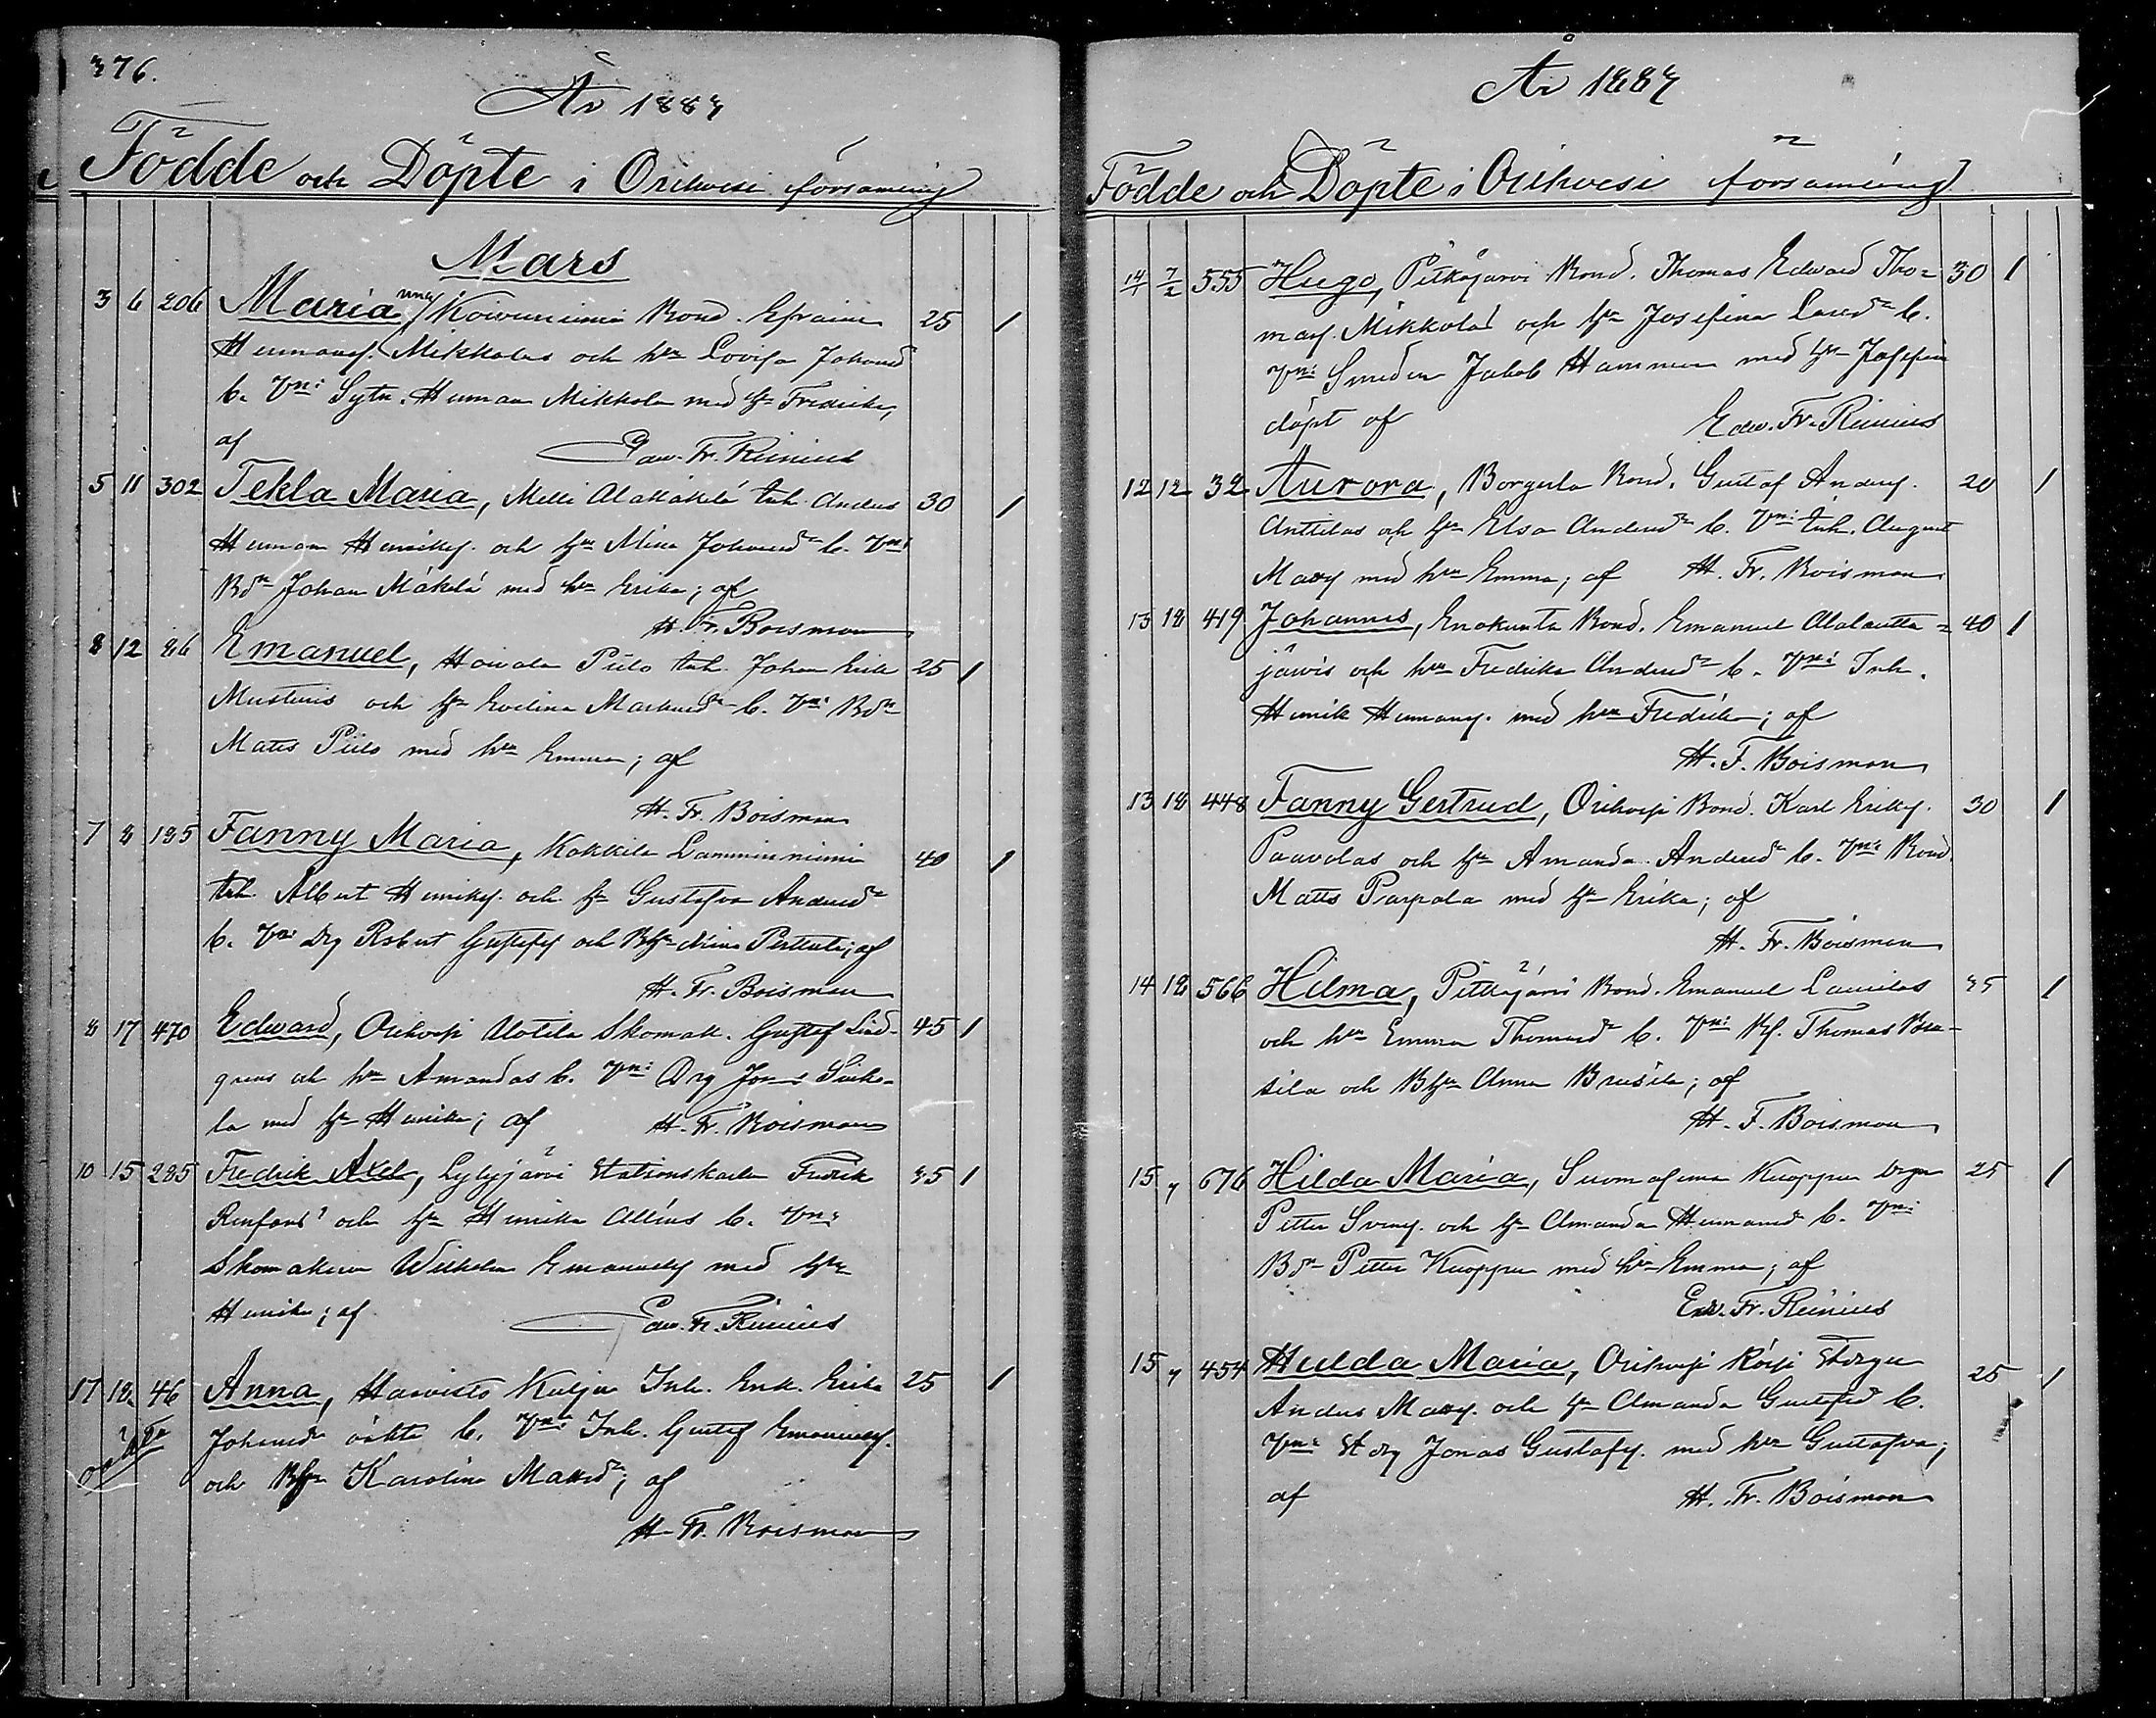 376.
År 1887
Födde och Döpte i Orihvesi församing
Mars
3 6 206 Maria, Koivuniemi Bond. Efraim 25 1
Hermansf. Mikkolas och hu Lovisa Johansd
b. Vn: Sytn. Herman Mikkola med h Fredrika,
af Edw. Fr. Reinius
5 11 302 Tekla Maria, Melli Alakäkelä Inh. Anders 30 1
Herman Henriks. och hu Mina Johansdr b. Vn:
Bdn Johan Mäkelä med hu Erika; af
H. Fr. Boisman
8 12 86 Emanuel, Hoivala Piilo Inh. Johan Erik 25 1
och h Evelina b. Vn: Bdn
Matts Piilo med hu Emma; af
H. Fr. Boisman
7 8 185 Fanny Maria, Kokkila Lamminniemi 40 1
Inh. Albert Henriks. och h Gustafva Andersdr
b. Vn: Drg Robert Gustafs och Bh Mina Perttula; af
H. Fr. Boisman
8 17 470 Edward, Orihvesi Uotila Skomak. Gustaf Lind- 45 1
grens och hu Amandas b. Vn: Drg Jonas Sinko-
la med h Henrika; af H. Fr. Boisman
10 15 285 Fredrik Axel, Lylyjärvi Stationskarlen Fredrik 35 1
Renfors' och h Henrika b. Vn:
Skomakaren Wilhelm Emanuels med h
Henrika; af Edw. Fr. Reinius
17 18 46 Anna, Haavisto Inh. Enk. Erika 25 1
oäkta Johansdr oäkta b. Vn: Inh. Gustaf Emanuels.
och Bh Karolina Mattsdr; af
H. Fr. Boisman
År 1887
Födde och Döpte i Orihvesi församing
14/1 7/2 555 Hugo, Pitkäjärvi Bond. Thomas Edward Tho= 30 1
mas. Mikkolas och hu Josefina b.
Vn: Smeden Jakob Hammar med hu Josefina
döpt af Edw. Fr. Reinius
12 12 32 Aurora, Bond. Gustaf Anders. 20 1
Anttilas och hu Elsa Andersdr b. Vn: Inh. August
Matts med hu Emma; af H. Fr. Boisman
13 18 419 Johannes, Enokunta Bond. Emanuel Alalautta= 40 1
järvis och hu Fredrika Andersdr b. Vn: Inh.
Henrik Hermans. med hu Fredrika; af
H. F. Boisman
13 18 448 Fanny Gertrud, Orihvesi Bond. Karl Eriks. 30 1
Paavolas och hu Amanda Andersdr b. Vn: Bond.
Matts Parpala med hu Erika; af
H. Fr. Boisman
14 18 566 Hilma, Pitkäjärvi Bond. Emanuel Laurilas 35 1
och hu Emma Thomasdr b. Vn: Bs. Thomas Bru-
sila och Bhu Anna Brusila; af
H. F. Boisman
15 " 676 Hilda Maria, Suomasema Kuoppa drgn 25 1
Petter Svens. och hu Amanda Hermansdr b. Vn:
Bdn Petter Kuoppa med hu Emma; af
Edw. Fr. Reinius
15 " 454 Hulda Maria, Orihvesi Stdrgn 25 1
Anders Matts. och hu Amanda Gustafsdr b.
Vn: Stdrg Jonas Gustafs. med hu Gustafva;
af H. Fr. Boisman